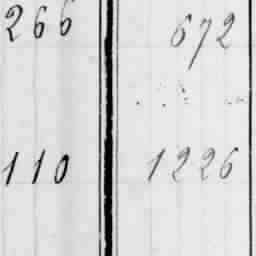 266 672
110 1226